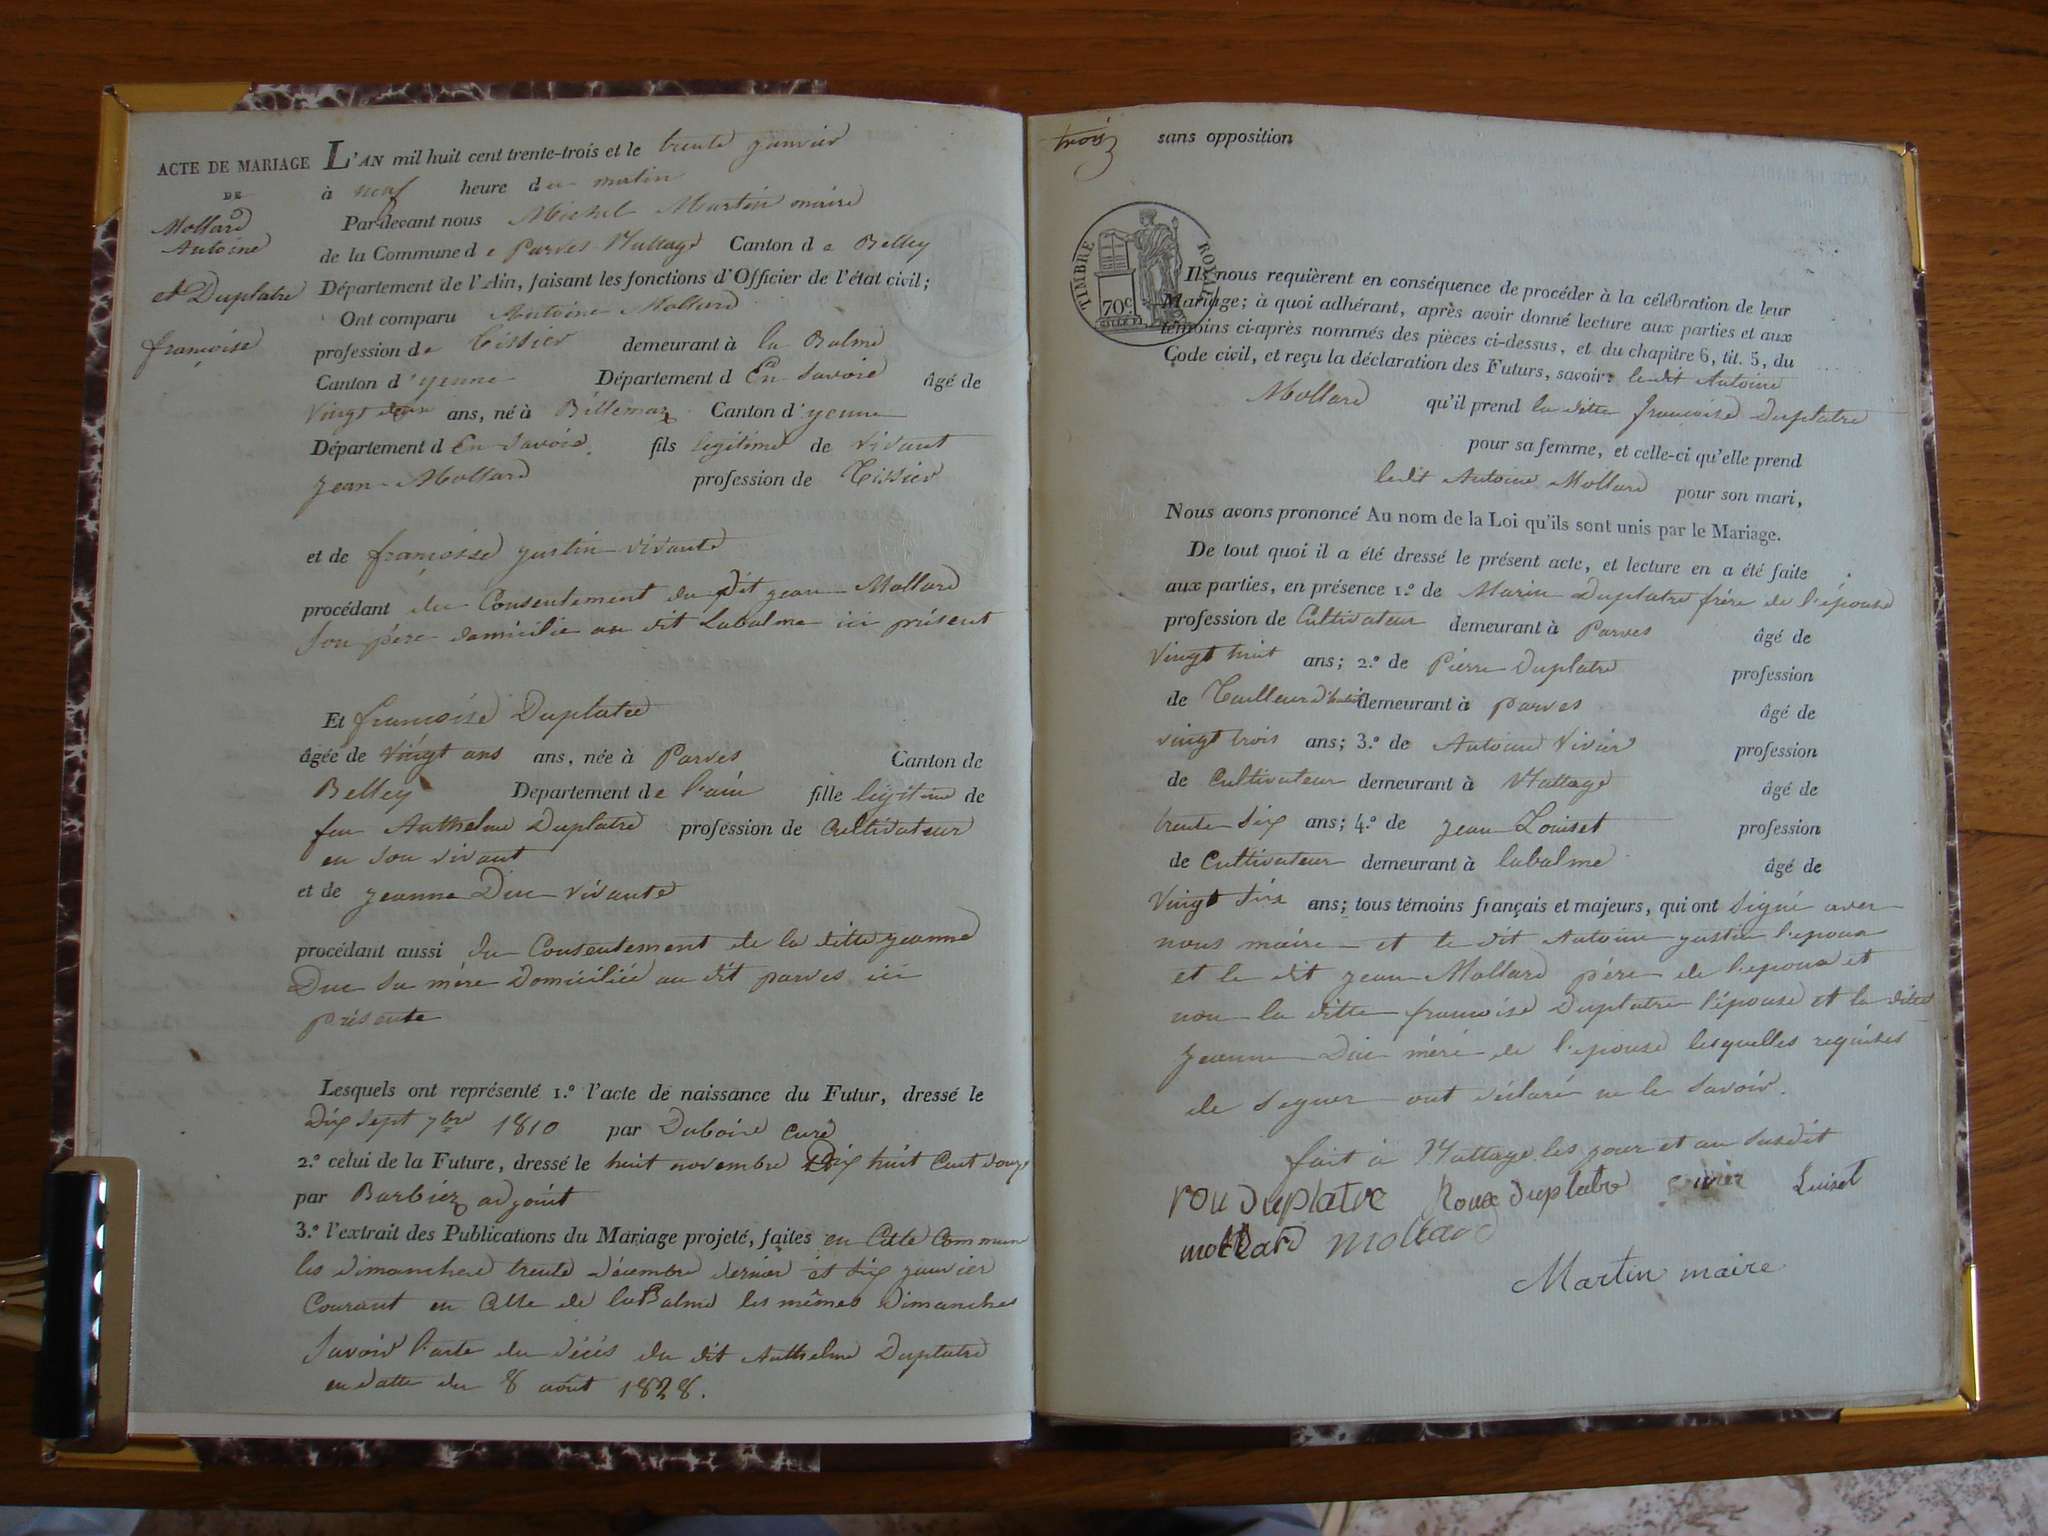 ACTE DE MARIAGE
DE
Mollard
Antoine
et Duplatre
françoise
L'AN mil huit cent trente-trois et le trente janvier
à neuf heure du matin
Par-devant nous Michel Martin maire
de la Commune de Parves Nattage Canton de Belley
Département de l'Ain, faisant les fonctions d'Officier de l'état civil;
Ont comparu Antoine Mollard
profession de Tissier demeurant à la Balme
Canton d'yenne Département d En Savoie âgé de
Vingt deux ans, né à Billemaz Canton d'yenne
Département d En Savoie fils légitime de vivant
jean Mollard profession de Tissier
et de françoise justin vivante
procédant du Consentement du dit jean Mollard
son père domicilié au dit Labalme ici présent
Et françoise Duplatre
âgée de vingt ans ans, née à Parves Canton de
Belley Département de l'ain fille légitime de
feu Anthelme Duplatre profession de Cultivateur
en son vivant
et de jeanne Duc vivante
procédant aussi du Consentement de la ditte jeanne
Duc sa mère Domiciliée au dit parves ici
présente
Lesquels ont représenté 1.º l'acte de naissance du Futur, dressé le
Dix sept 7bre 1810 par Duboire curé
2.º celui de la Future, dressé le huit novembre Dix huit Cent douze
par Barbier adjoint
3.º l'extrait des Publications du Mariage projeté, faites en Cette Commune
les dimanches trente décembre dernier et six janvier
Courant en Celle de la Balme les mêmes dimanches
Savoir l'acte du décés du dit Anthelme Duplatre
en datte du 8 août 1828.
trois
sans opposition
TIMBRE ROYAL
70c
Ils nous requièrent en conséquence de procéder à la célébration de leur
Mariage; à quoi adhérant, après avoir donné lecture aux parties et aux
témoins ci-après nommés des pièces ci-dessus, et du chapitre 6, tit. 5, du
Code civil, et reçu la déclaration des Futurs, savoir: ledit Antoine
Mollard qu'il prend la ditte françoise Duplatre
pour sa femme, et celle-ci qu'elle prend
ledit Antoine Mollard pour son mari,
Nous avons prononcé Au nom de la Loi qu'ils sont unis par le Mariage.
De tout quoi il a été dressé le présent acte, et lecture en a été faite
aux parties, en présence 1.º de Marin Duplatre frère de l'épouse
profession de Cultivateur demeurant à Parves âgé de
Vingt huit ans; 2.º de Pierre Duplatre profession
de Tailleur d'habit demeurant à parves âgé de
vingt trois ans; 3.º de Antoine Vivier profession
de Cultivateur demeurant à Nattage âgé de
trente six ans; 4.º de jean Louiset profession
de Cultivateur demeurant à labalme âgé de
Vingt six ans; tous témoins français et majeurs, qui ont signé avec
nous maire et le dit Antoine justin l'epoux
et le dit jean Mollard père de l'epoux et
non la ditte françoise Duplatre l'épouse et la ditte
jeanne Duc mère de l'epouse lesquelles requises
de signer ont déclaré ne le savoir.
fait à Nattage les jour et an susdit
rou duplatre Roux duplatre Luiset
mollard mollard
Martin maire